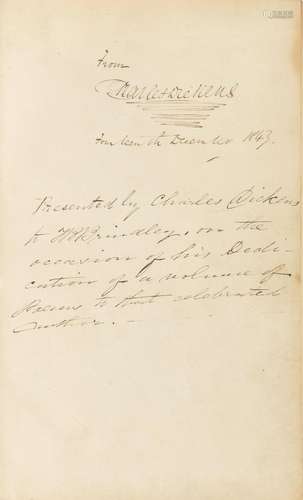 From
Charles Dickens
Fourteenth December 1843.
Presented by Charles Dickens
to W R Brindley, on the
occasion of his Dedi-
cation of a volume of
Poems to that celebrated
author.